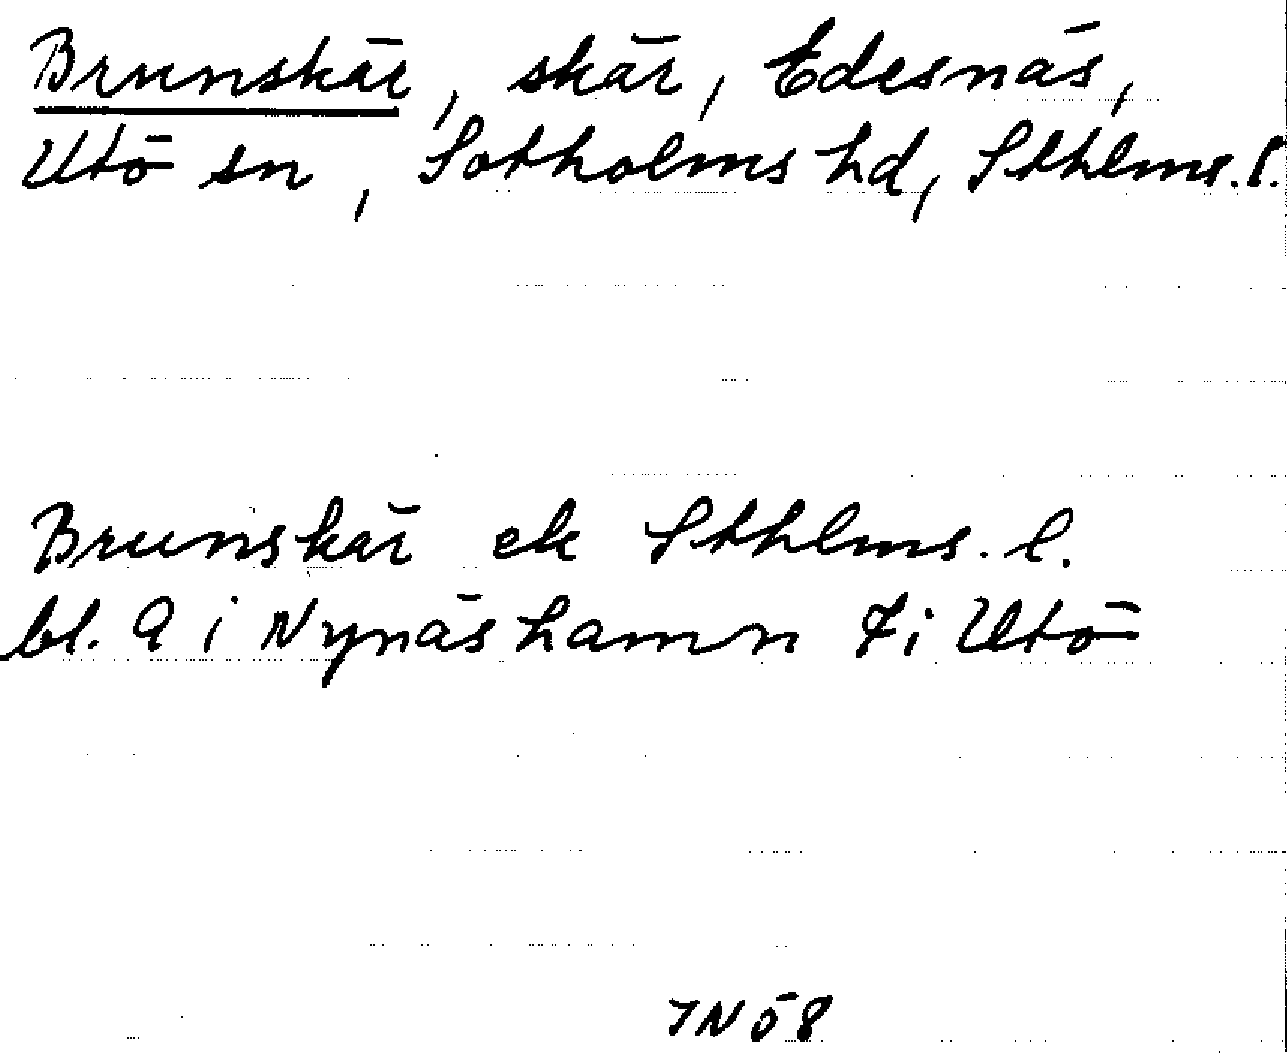 Brunskär, skär, Edesnäs,
Utö sn, Sotholms hd, Sthlms. l.
Brunskär ek Sthlms. l.
bl. 9 i Nynäshamn 7 i Utö
7N ö 8